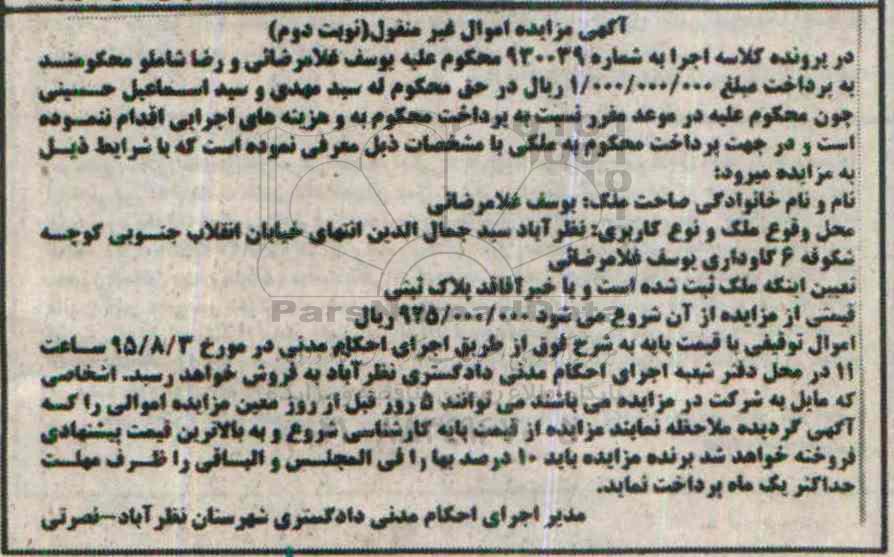 آگهی مزایده اموال غیر منقول(نوبت دوم)
در پرونده کلاسه اجرا به شماره ۹۳۰۰۳۹ محکوم علیه یوسف غلامرضائی و رضا شاملو محکومند
به پرداخت مبلغ ۱/۰۰۰/۰۰۰/۰۰۰ ریال در حق محکوم له سید مهدی و سید اسماعیل حسینی
چون محکوم علیه در موعد مقرر نسبت به پرداخت محکوم به و هزینه های اجرایی اقدام ننموده
است و در جهت پرداخت محکوم به ملکی با مشخصات ذیل معرفی نموده است که با شرایط ذیل
به مزایده میرود:
نام و نام خانوادگی صاحت ملک: یوسف غلامرضائی
محل وقوع ملک و نوع کاربری: نظرآباد سید جمال الدین انتهای خیابان انقلاب جنوبی کوچه
شکوفه ۶ گاوداری یوسف غلامرضائی
تعیین اینکه ملک ثبت شده است و یا خیر؟فاقد پلاک ثبتی
ParsNamadData
قیمتی از مزایده از آن شروع می شود ۹۲۵/۰۰۰/۰۰۰ ریال
اموال توقیفی با قیمت پایه به شرح فوق از طریق اجرای احکام مدنی در مورخ ۹۵/۸/۳ ساعت
۱۱ در محل دفتر شعبه اجرای احکام مدنی دادگستری نظرآباد به فروش خواهد رسید. اشخاصی
که مایل به شرکت در مزایده می باشند می توانند ۵ روز قبل از روز معین مزایده اموالی را که
آگهی گردیده ملاحظه نمایند مزایده از قیمت پایه کارشناسی شروع و به بالاترین قیمت پیشنهادی
فروخته خواهد شد برنده مزایده باید ۱۰ درصد بها را فی المجلس و الباقی را ظرف مهلت
حداکثر یک ماه پرداخت نماید.
مدیر اجرای احکام مدنی دادگستری شهرستان نظرآباد-نصرتی